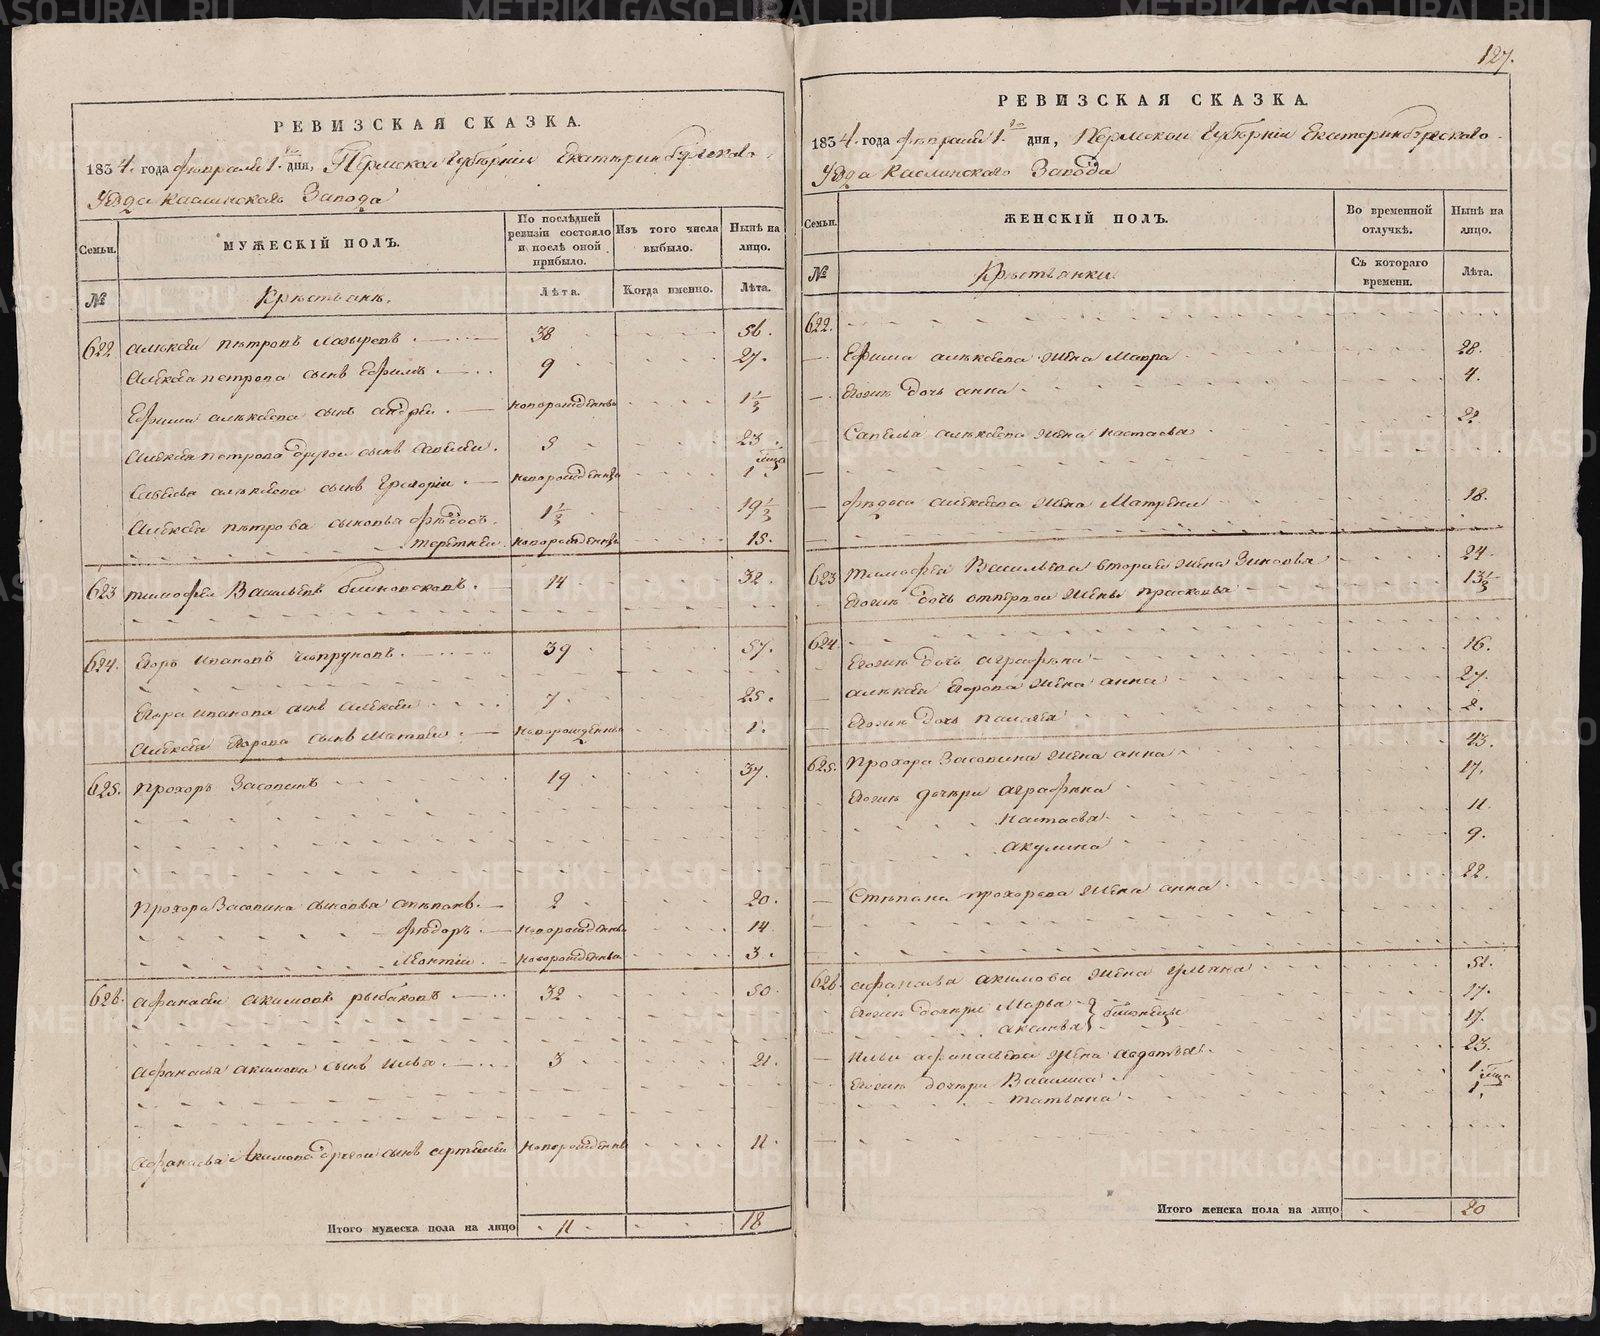 127.
РЕВИЗСКАЯ СКАЗКА.
1834. года февраля 1.го дня, Пермской Губерніи Екатеринбургскаго
Уѣзда Каслинскаго Завода
Семьи.
МУЖЕСКІЙ ПОЛЪ.
По послѣдней ревизіи состояло и послѣ оной прибыло.
Изъ того числа выбыло.
Нынѣ на лицо.
№
Крестьянѣ.
Лѣта.
Когда именно.
Лѣта.
622 Алексѣй Петровъ Лазыревъ. 38 56.
Алексѣя Петрова сынъ Ефимъ. 9 27.
Ефима Алексѣева сынъ Андрей. новорожденный 1½
Алексѣя Петрова другой сынъ Савелій. 5 23.
Савелья Алексѣева сынъ Григорій. новорожденный 1 мѣся
Алексѣя Петрова сыновья Федосъ. 1½ 19½
Терентей. новорожденный 15.
623 Тимофей Васильевъ Блиновсковъ. 14 32.
624. Егоръ Ивановъ Чепруновъ. 39 57.
Егора Иванова сынъ Алексѣй 7. 25.
Алексѣя Егорова сынъ Матвей. новорожденный 1.
625. Прохоръ Засопинъ 19 37.
Прохора Засопина сыновья Степанъ. 2 20.
Федоръ. новорожденный 14
Леонтій. новорожденный 3.
626. Афанасей Акимовъ Рыбаковъ 32 50
Афанасья Акимова сынъ Илья. 3 21.
Афанасья Акимова другой сынъ Артемій новорожденный 11
Итого мужеска пола на лицо 11 18
РЕВИЗСКАЯ СКАЗКА.
1834. года февраля 1.го дня, Пермской Губерніи Екатеринбургскаго
Уѣзда Каслинскаго Завода
Семьи.
ЖЕНСКІЙ ПОЛЪ.
Во временной отлучкѣ.
Нынѣ на лицо.
№
Крестьянки.
Съ котораго времени.
Лѣта.
622.
Ефима Алексѣева жена Мавра 28.
Егожъ дочь Анна 4.
Савелья Алексѣева жена Настасья 22
Федоса Алексѣева жена Матрена 18.
623 Тимофея Васильева вторая жена Зиновья 24
Егожъ дочь отпервой жены Прасковья 13½
624
Егожъ дочь Аграфена 16.
Алексѣя Егорова жена Анна 27.
Егожъ дочь Палагея 2.
625. Прохора Засопина жена Анна 43.
Егожъ дочери Аграфена 17.
Настасья 11.
Акулина 9.
Степана Прохорова жена Анна 22.
626. Афанасья Акимова жена Ульяна 51.
Егожъ дочери Марья 17.
Аксинья близнецы 17.
Ильи Афанасьева жена Авдотья 23.
Егожъ дочери Василиса 1
Татьяна 1 мѣся
Итого женска пола на лицо 20
METRIKI.GASO-URAL.RU